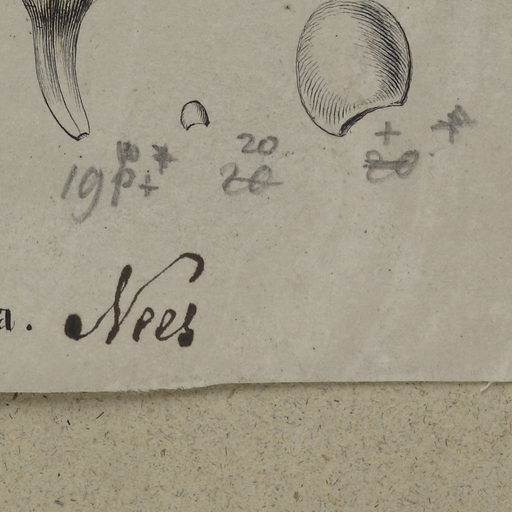 19
20
20
20
a. Nees